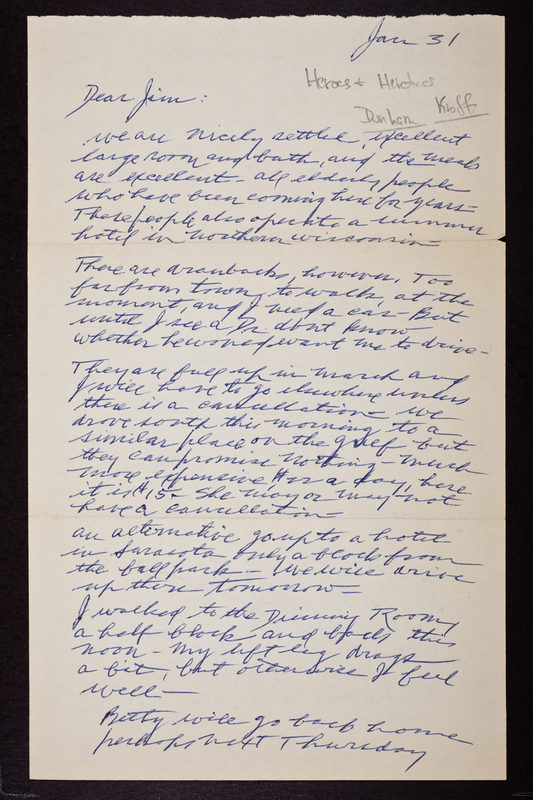 Jan 31
Heroes + Heretics
Dunham Knopf
Dear Jim:
we are nicely settled, excellent
large room and bath, and the meals
are excellent - all elderly people
who have been coming here for years -
These people also operate a summer
hotel in northern wisconsin -
There are drawbacks, however. Too
far from town to walk, at the
moment, and I need a car - But
until I see a Dr don't know
whether he would want me to drive -
They are full up in March and
I will have to go elsewhere unless
there is a cancellation - we
drove south this morning to a
similar place on the gulf but
they can promise nothing - much
more expensive a day, here
it is $15 - She may or may not
have a cancellation -
an alternative go up to a hotel
in Sarasota only a block from
the ball park - We will drive
up there tomorrow -
I walked to the Dining Room,
a half block and back this
noon - my left leg drags
a bit, but otherwise I feel
well -
Betty will go back home
perhaps next Thursday